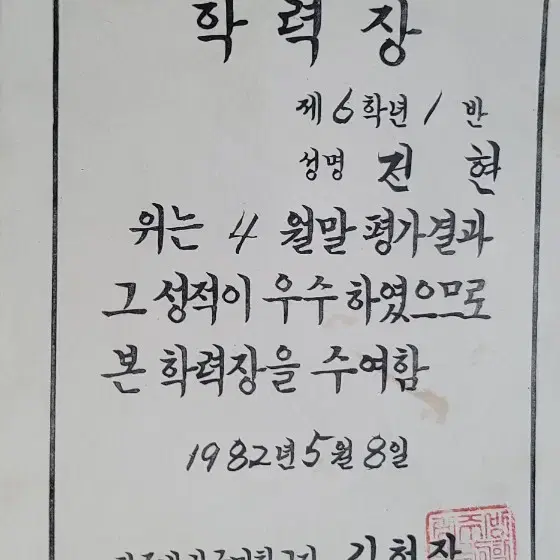 학력장
제 6 학년 1 반
성명 진 현
위는 4 월말 평가결과
그 성적이 우수 하였으므로
본 학력장을 주여함
1982년 5월 8일